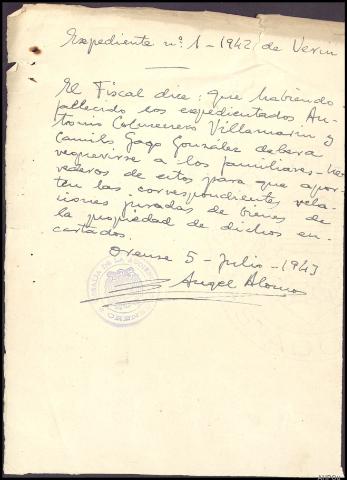 Expediente nº 1 - 1942 de Verin
El Fiscal dice: que habiendo
fallecido los expedientados An-
tonio Colmenero Villamarin y
Camilo Gago González debera
requerirse a los familiares - he-
rederos de estos para que apor-
ten las correspondientes rela-
ciones juradas de bienes de
la propiedad de dichos en-
cartados.
Orense 5 - Julio - 1943
Angel Alonso